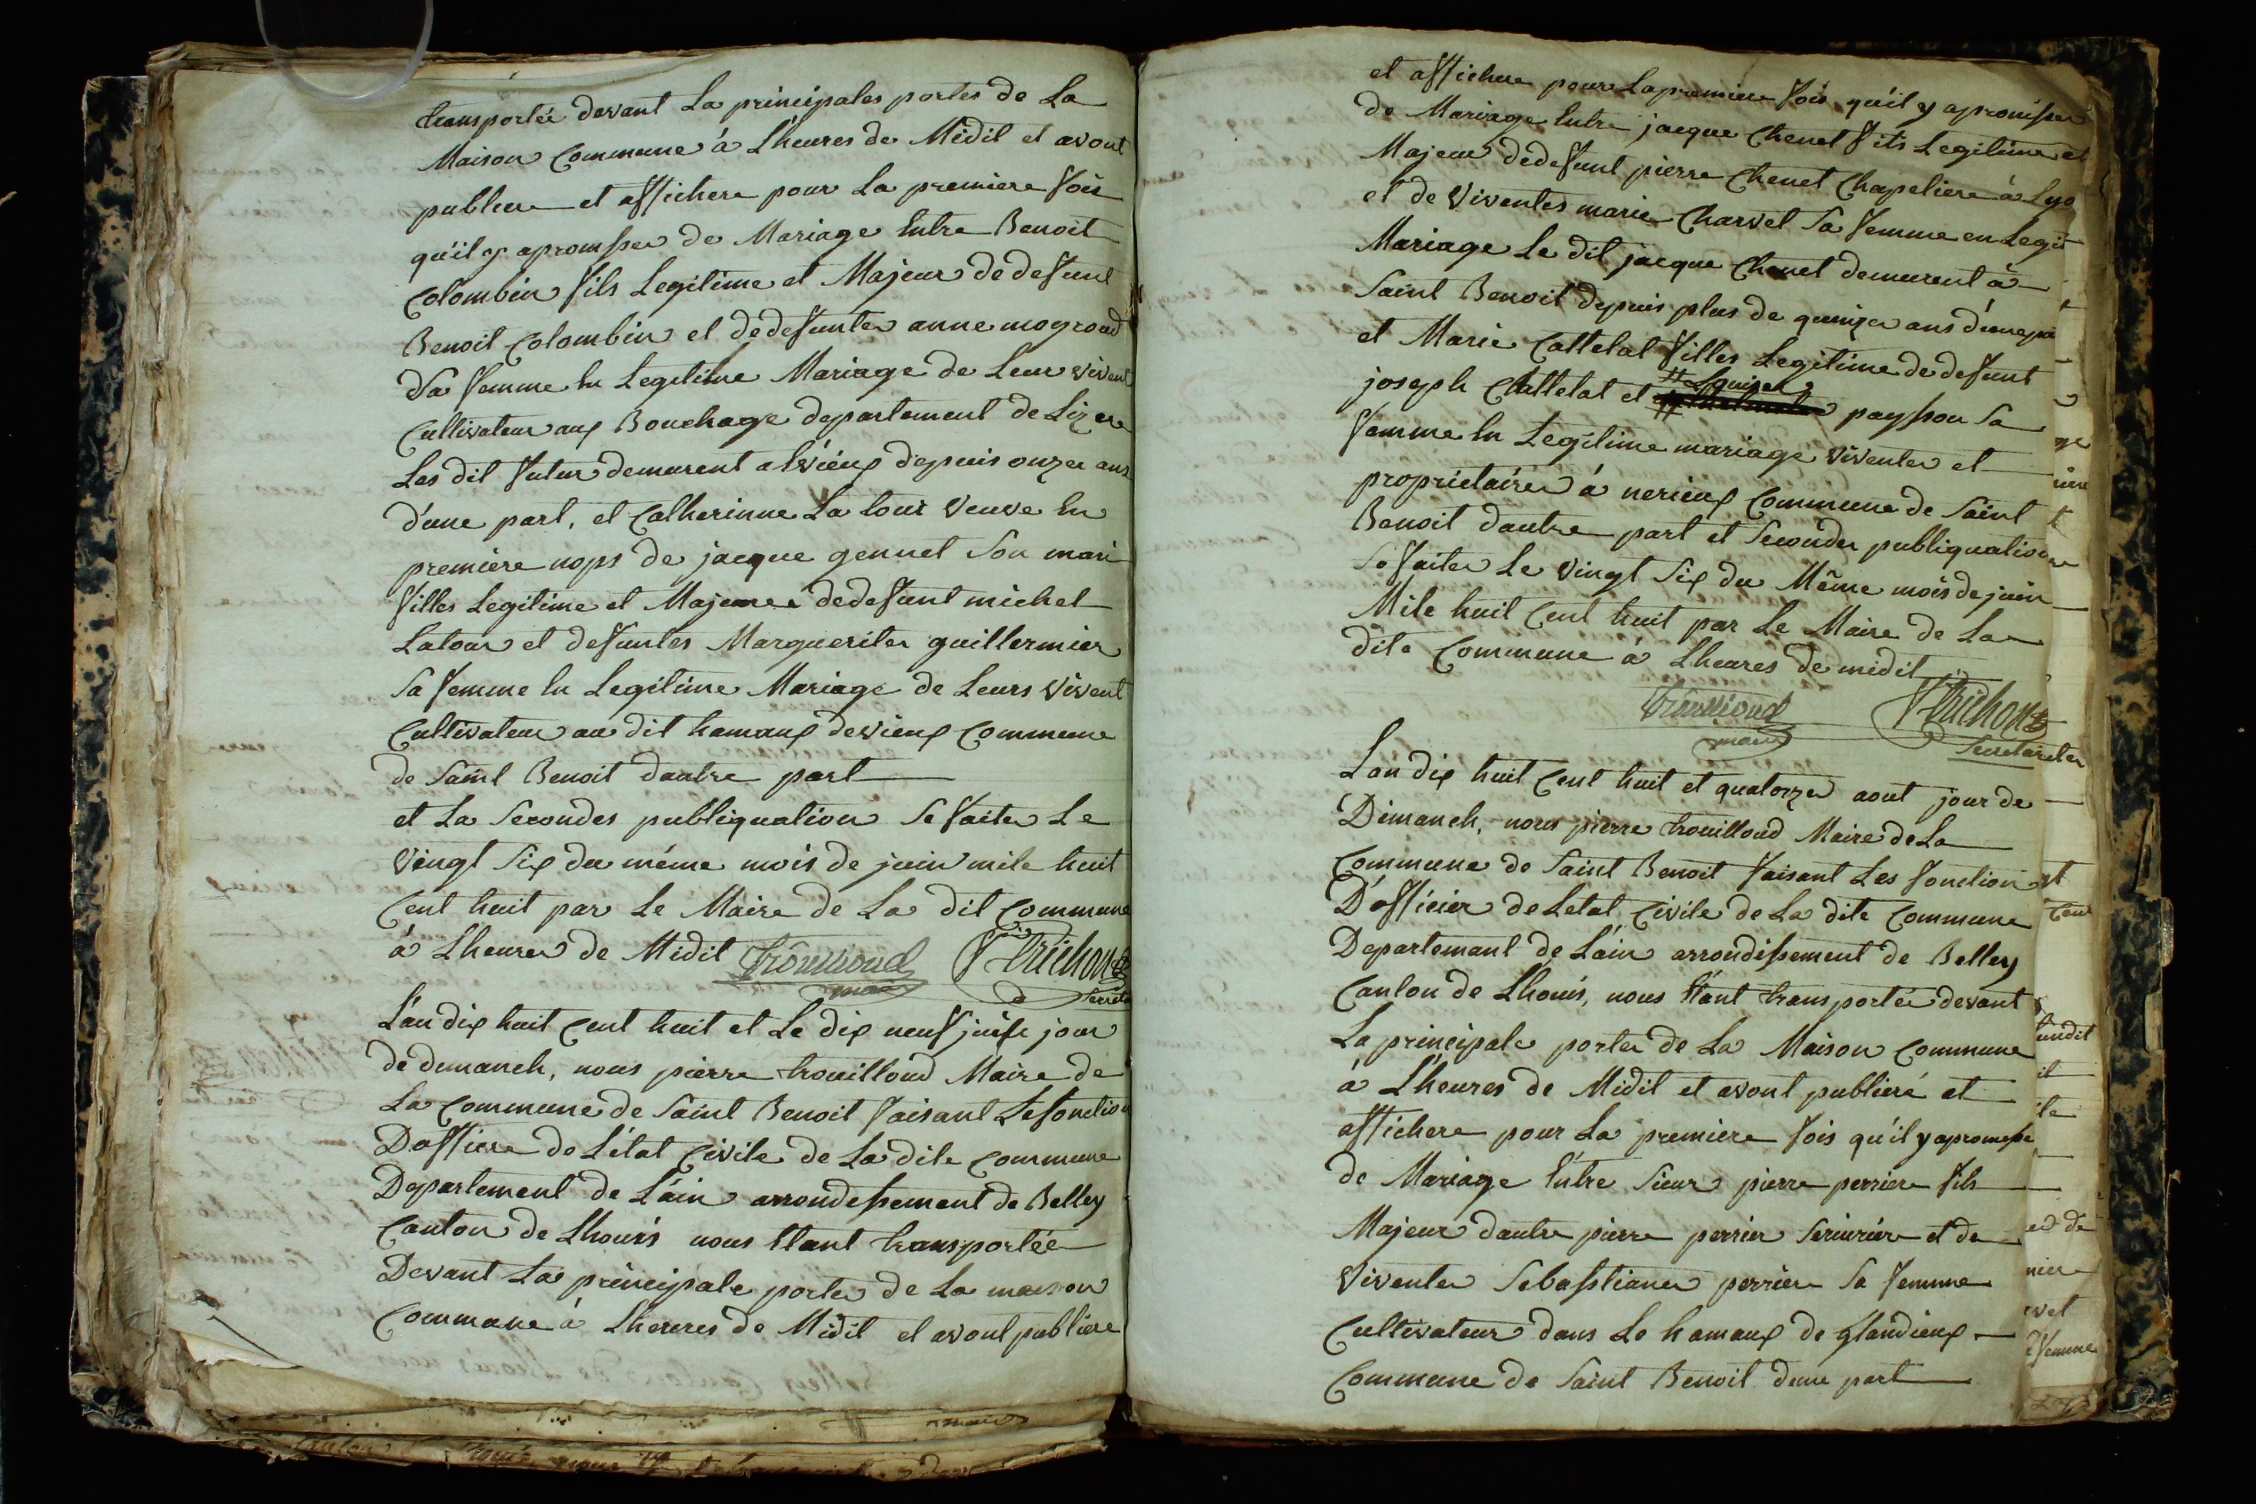 transportée devant La principales portes de La
Maison Commune á Lheures de Midil et avont
publiere et affichere pour La premiere fois
qu'il y apromsse de Mariage Entre Benoit
Colombin fils Legitime et Majeur de defunt
Benoit Colombin et dedefuntes anne mogroud
Sa femme En Legitime Mariage de Leur vivent
Cultivateur aux Bouchage departement de Lizere
Les dit futur demeurent alvieux depuis onzes ans
d'une part, et Catherinne La tour veuve En
premiere nops de jacque gennet Son mari
filles Legitime et Majeure dedefunt michel
Latour et defuntes Marguerites guillermier
Sa femme En Legitime Mariage de Leurs vivent
Cultivateur au dit hamaux devieux Commune
de Saint Benoit dautre part
et La Secondes publiquation Se faites Le
vingt Six du même mois de juin mile huit
Cent huit par Le Maire de La dit Commune
á Lheures de Midil Trouilloud Trichon
maire Secret
L'an dix huit Cent huit et Le dix neuf juin jour
de demanch, nous pierre trouilloud Maire de
La Commune de Saint Benoit faisant Le fonction
D'officiere de L'état Civile de La dite Commune
Departement de L'ain arrondessement de Belley
Canton de Lhouis nous Etant transportée
Devant La principale portes de La maison
Commune á Lheures de Midil et avont publiere
et affichere pour La premiere fois qu'il y apromsse
de Mariage Entre jacque Chenet fils Legitime et
Majeur dedefunt pierre Chenet Chapeliere à Lyo
et de viventes marie Charvet Sa femme en Legit
Mariage Le dit jacque Chenet demeurent à
Saint Benoit depuis plus de quinze ans d'une pa
et Marie Cattelat filles Legitime de defunt
joseph Cattelat et Louises paysson Sa
femme En Legitime mariage viventes et
proprietaires á nerieux Commune de Saint
Benoit dautre part et Secondes publiquation
Se faites Le vingt Six du Même mois de juin
Mile huit Cent huit par Le Maire de La
dite Commune á Lheures de midil
Trouilloud Trichon
maire Secretaires
Lan dix huit Cent huit et quatorze aout jour de
Dimanch, nous pierre trouilloud Maire de La
Commune de Saint Benoit faisant Les fonction
D'officier de Letat Civile de La dite Commune
Departemant de L'ain arrondissement de Belley
Canton de Lhouis, nous Etant transportée devant
La principale portes de La Maison Commune
á Lheures de Midil et avont publieré et
affichere pour La premiere fois qu'il y apromesse
de Mariage Entre Sieur pierre perriere fils
Majeur dautre pierre perrier Seriurier et de
viventes Sebasstianes perriere Sa femme
Cultivateur dans Le hamaux de glandieux
Commune de Saint Benoit dune part